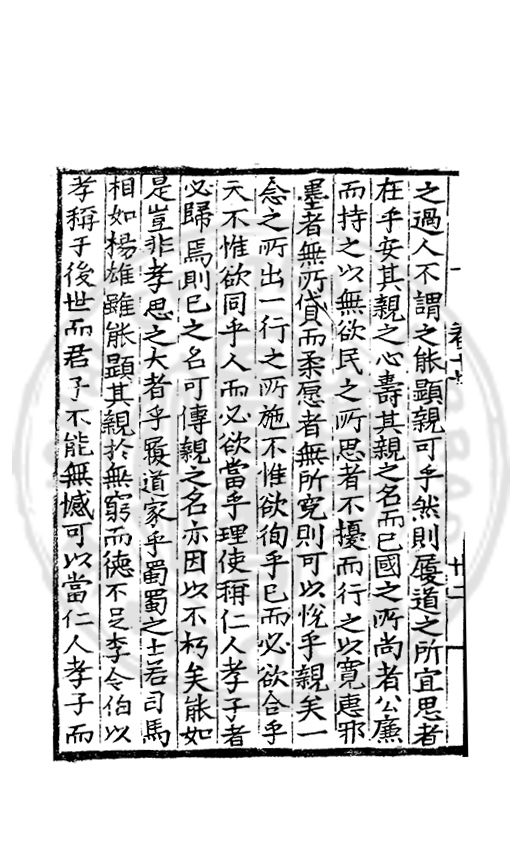 之過人不謂之能顯親可乎然則履道之所宜思者
在乎安其親之心壽其親之名而已國之所尚者公廉
而持之以無欲民之所思者不擾而行之以寛慝邪
墨者無所貸而柔愿者無所寃則可以悅乎親矣一
念之所出一行之所施不惟欲徇乎已而必欲合乎
天不惟欲同乎人而必欲當乎理使稱仁人孝子者
必歸焉則已之名可傳親之名亦因以不朽矣能如
是豈非孝思之大者乎履道家乎蜀蜀之士若司馬
相如楊雄雖能顯其親於無窮而德不足李令伯以
孝稱于後世而君子不能無憾可以當仁人孝子而